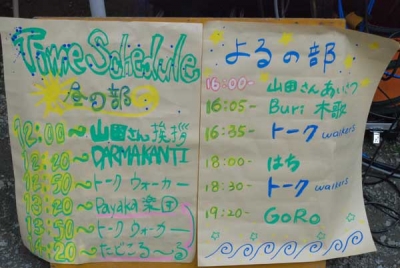 Time Schedule
昼の部
12:00〜山田さん挨拶
12:20〜DARMAKANTI
12:50〜トーク ウォーカー
13:20〜Payaka楽団
13:50〜トーク ウォーカー
14:20〜たどころ〜る
よるの部
16:00- 山田さんあいさつ
16:05- Buri 木歌
16:35- トーク walkers
18:00- はち
18:30- トーク walkers
19:20- GoRo